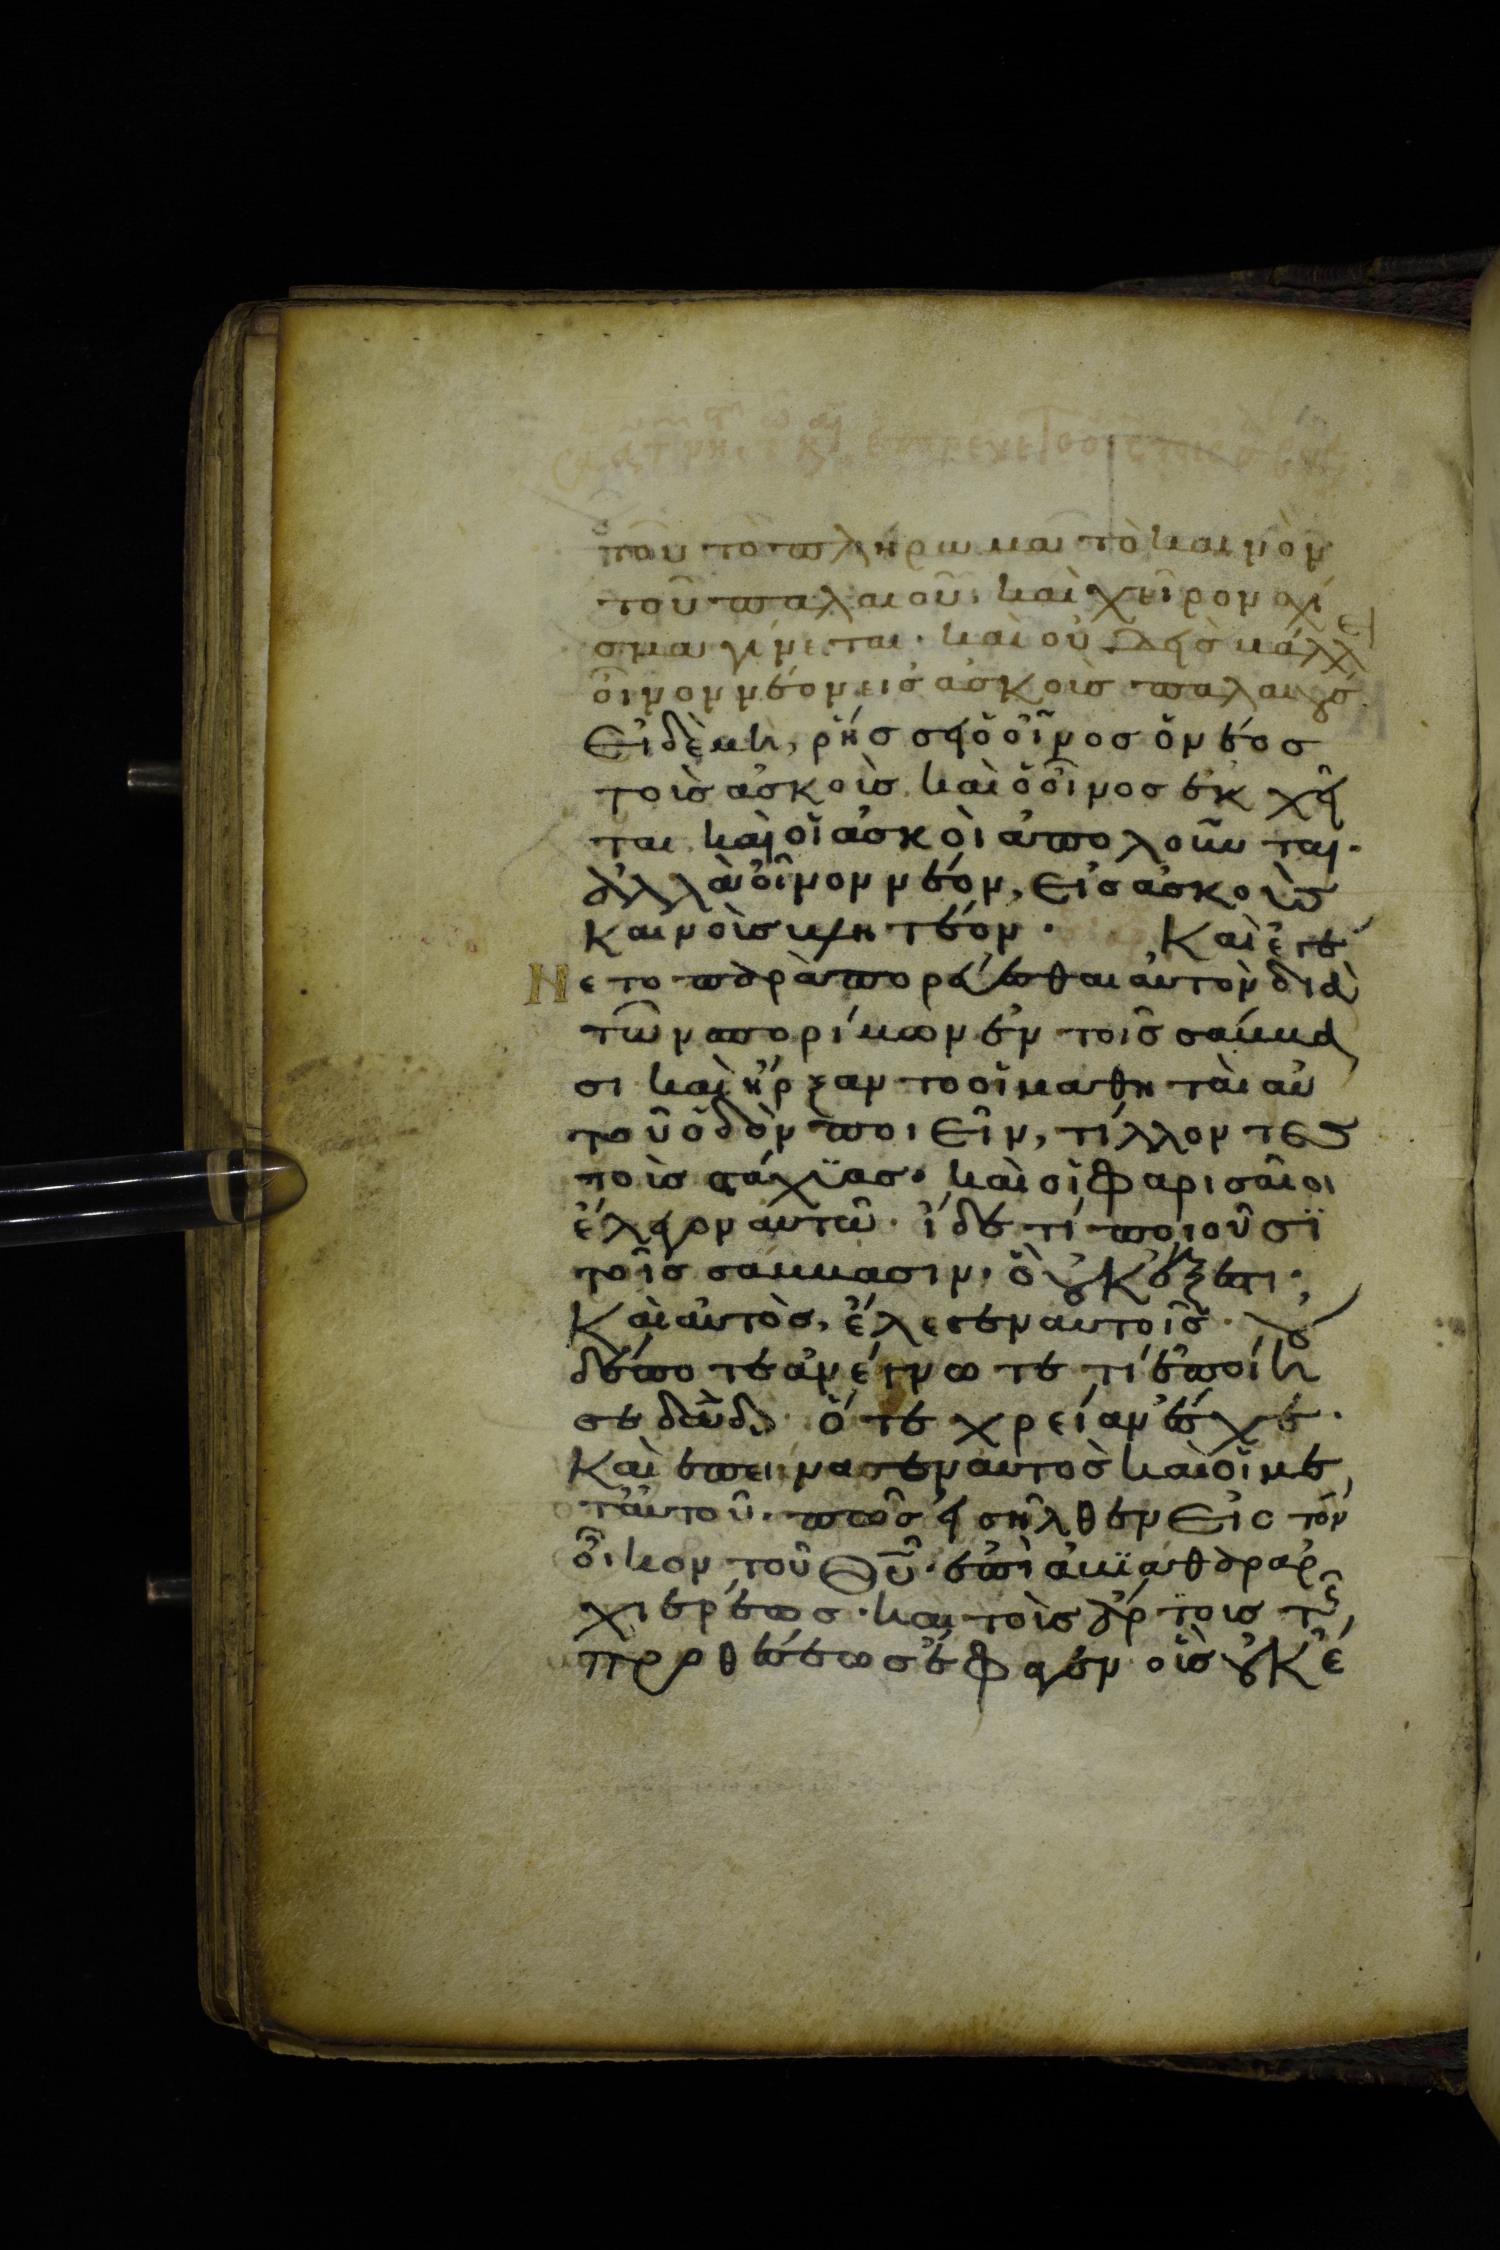 που το πληρωμα το καινὸν
τοῦ παλαιοῦ. καὶ χεῖρον σχί
σμα γίνεται. καὶ οὐδεὶς βάλλει
οἶνον νέον εἰς ἀσκοὺς παλαιούς.
Εἰ δὲ μὴ, ῥήσσει ὁ οἶνος ὁ νέος
τοὺς ἀσκοὺς καὶ ὁ οἶνος ἐκχεῖ
ται καὶ οἱ ἀσκοὶ ἀπολοῦνται.
ἀλλὰ οἶνον νέον, εἰς ἀσκοὺς
καινοὺς βλητέον. Καὶ ἐγέ
νετο παραπορεύεσθαι αὐτὸν διὰ
τῶν σπορίμων ἐν τοῖς σάββα
σι καὶ ἤρξαντο οἱ μαθηταὶ αὐ
τοῦ ὁδὸν ποιεῖν, τίλλοντες
τοὺς στάχυας. καὶ οἱ φαρισαῖοι
ἔλεγον αὐτῶ. ἴδε τί ποιοῦσϊ
τοῖς σάββασιν. ὃ οὐκ ἔξεστι.
Καὶ αὐτὸς, ἔλεγεν αὐτοῖς. οὐ
δέποτε ἀνέγνωτε τί ἐποίη
σε δᾱδ. ὅτε χρείαν ἔσχε.
Καὶ ἐπείνασεν αὐτὸς καὶ οἱ με
τ' αὐτοῦ. πῶς εἰσῆλθεν εἰς τὸν
οἶκον τοῦ Θῦ. ἐπὶ ἀβϊάθαρ ἀρ
χιερέως. καὶ τοὺς ἄρτους τῆς
προθέσεως ἔφαγεν οὓς οὐκ ἔ